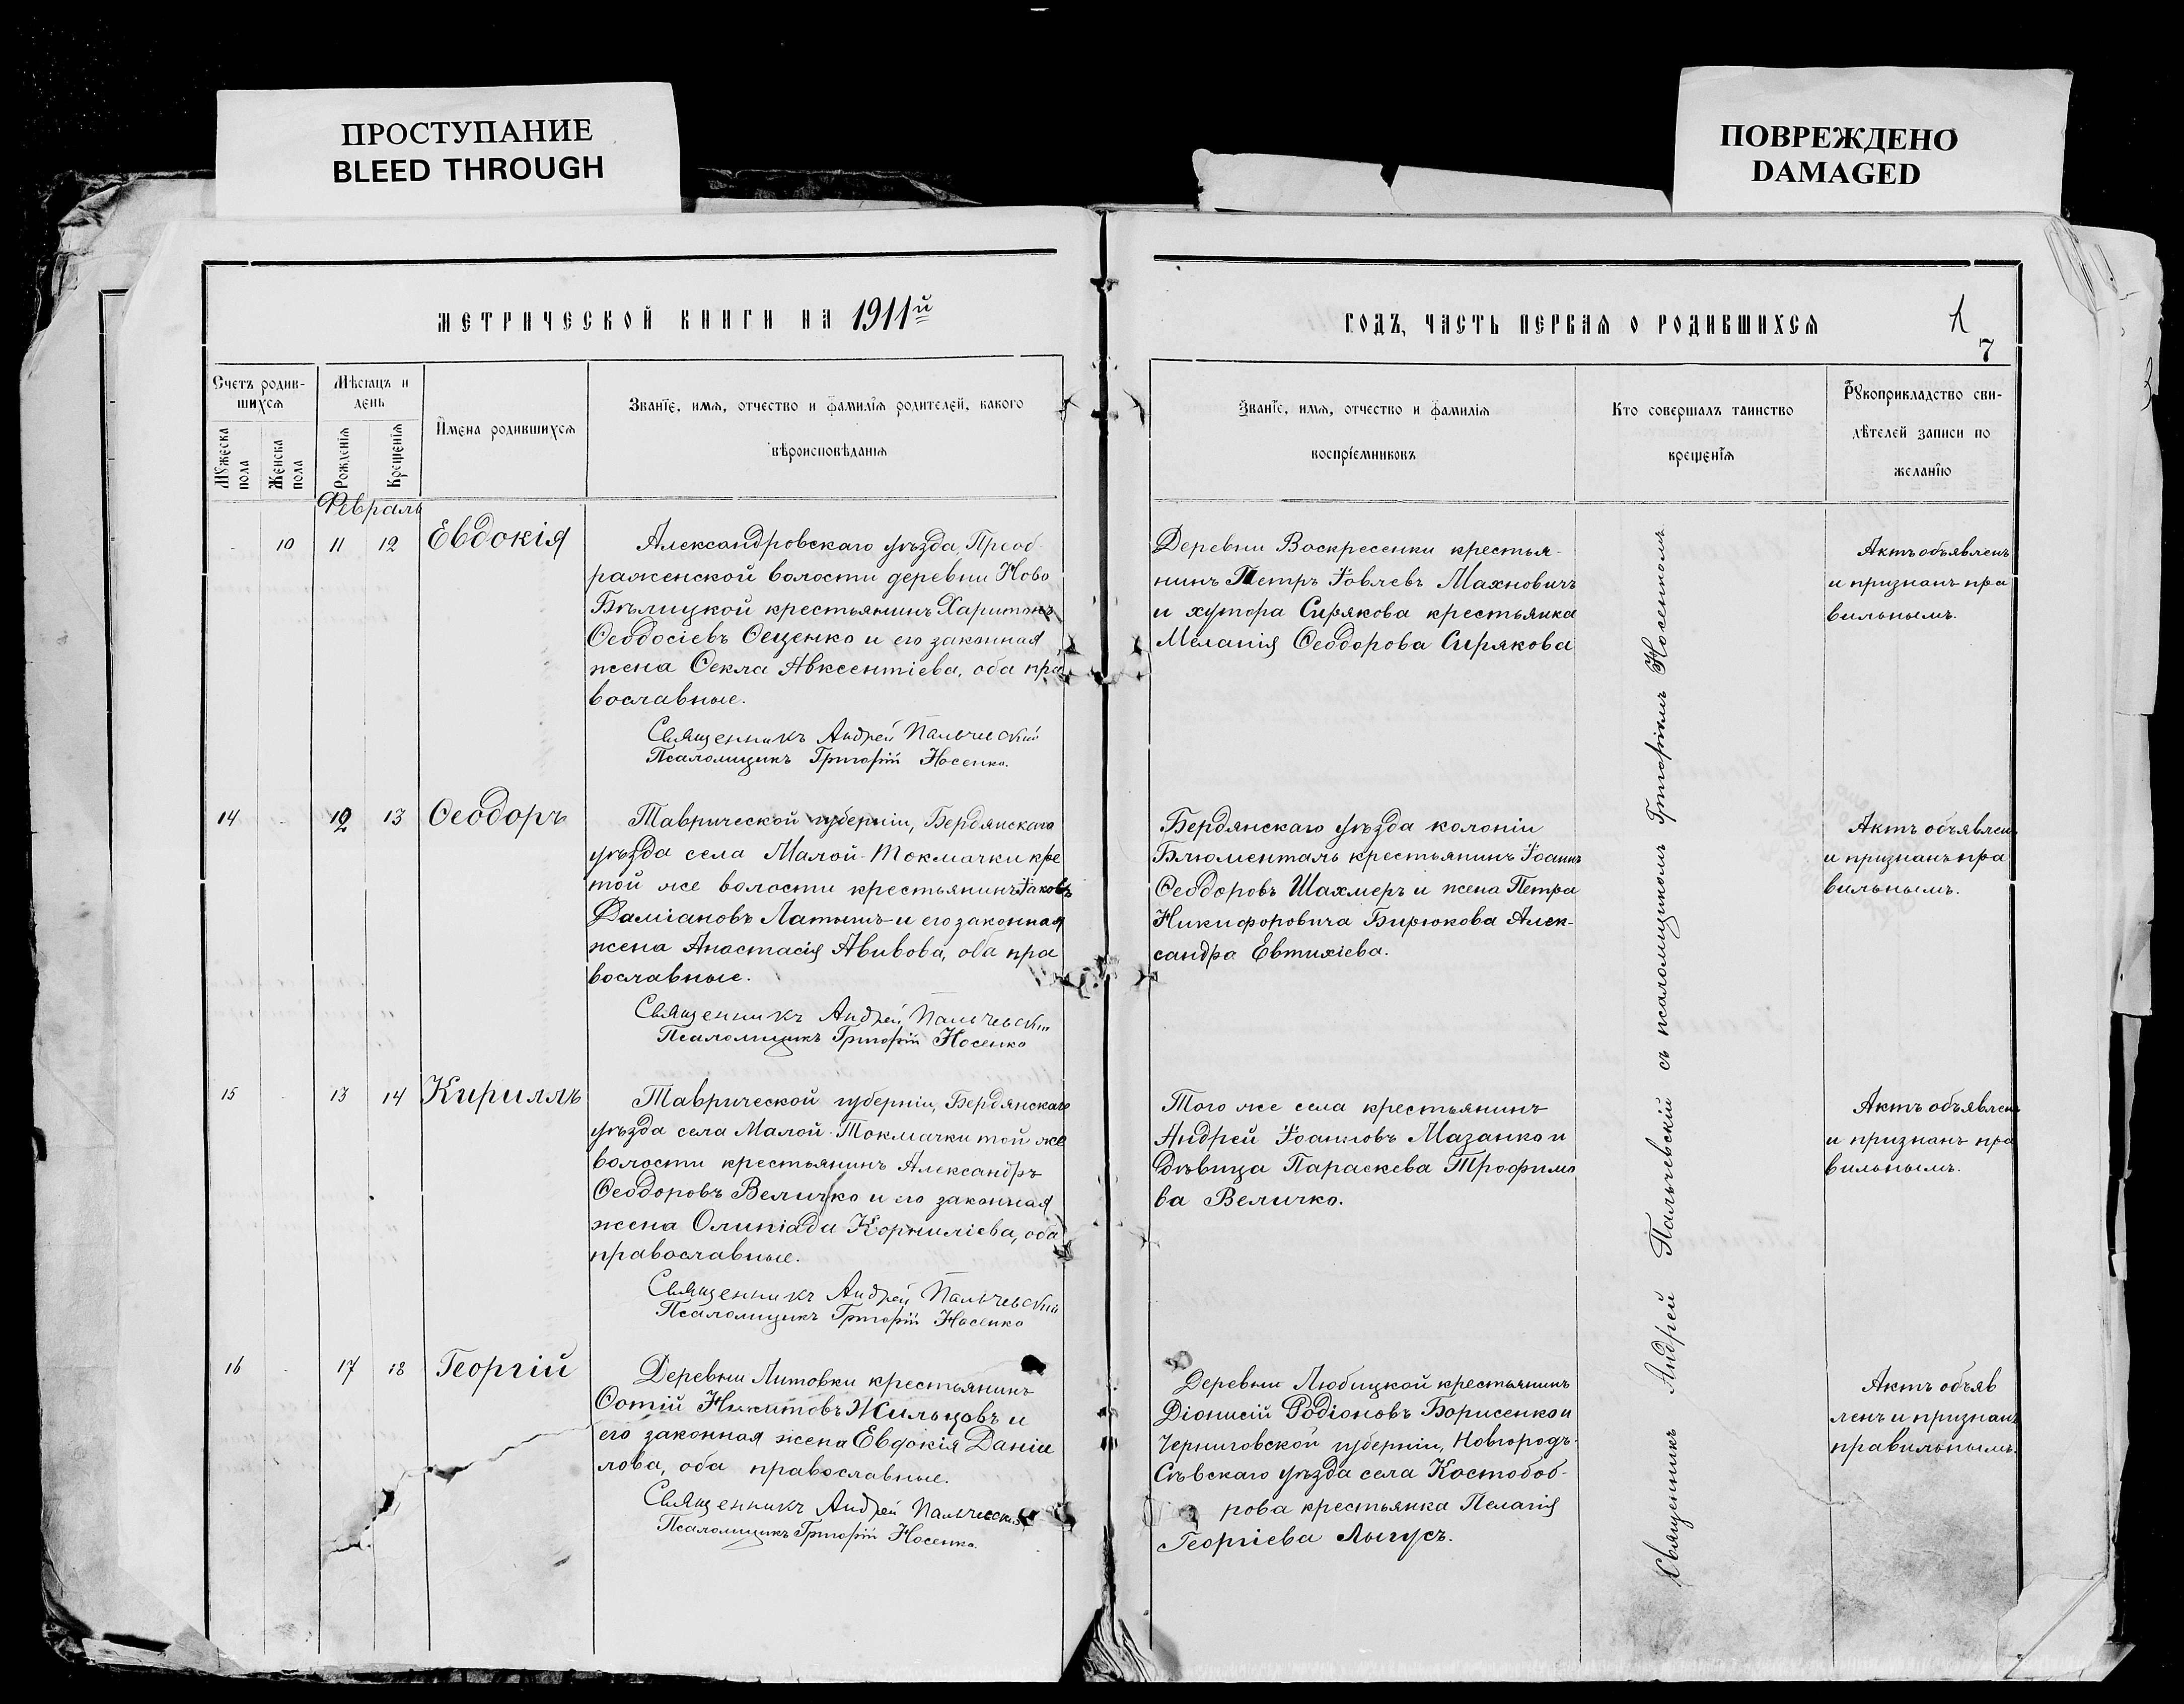 ПРОСТУПАНИЕ
BLEED THROUGH
ПОВРЕЖДЕНО
DAMAGED
МЕТРИЧЕСКОЙ КНИГИ НА 1911й
Счетъ родив-
шихся
Мѣсяцъ и
день
Мужеска
пола
Женска
пола
Рожденія
Крещенія
Имена родившихся
Званїе, имя, отчество и фамилїя родителей, какого
вѣроисповѣданія
Февраль
10 11 12 Евдокія
Александровскаго уѣзда, Преоб-
раженской волости деревни Ново
Бѣлицкой крестьянинъ Харитонъ
Ѳеодосіевъ Ѳещенко и его законная
жена Ѳекла Авксентіева, оба пра
вославные.
Священникъ Андрей Пальчевскій
Псаломщикъ Григорій Носенко.
14 12 13 Ѳеодоръ
Таврической губерніи, Бердянскаго
уѣзда села Малой-Токмачки кре
той же волости крестьянинъ Іаковъ
Даміановъ Латышъ и его законная
жена Анастасія Авивова, оба пра
вославные.
Священникъ Андрей Пальчевскій
Псаломщикъ Григорій Носенко
15 13 14 Кириллъ
Таврической губерніи, Бердянскаго
уѣзда села Малой-Токмачки той же
волости крестьянинъ Александръ
Ѳеодоровъ Величко и его законная
жена Олипіада Корниліева, оба
православные.
Священникъ Андрей Пальчевскій
Псаломщикъ Григорій Носенко
16 17 18 Георгій
Деревни Литовки крестьянинъ
Ѳотій Никитовъ Жильцовъ и
его законная жена Евдокія Даніи
лова, оба православные.
Священникъ Андрей Пальчевскій
Псаломщикъ Григорій Носенко.
ГОДЪ, ЧАСТЬ ПЕРВАЯ О РОДИВШИХСЯ
1
7
3
Званїе, имя, отчество и фамилїя
воспрїемниковъ
Кто совершалъ таинство
крещенїя
Рукоприкладство сви-
дѣтелей записи по
желанїю
Деревни Воскресенки крестья-
нинъ Петръ Іовлевъ Махновичъ
и хутора Сирякова крестьянка
Меланія Ѳеодорова Сирякова
Бердянскаго уѣзда колоніи
Блюменталь крестьянинъ Іоаннъ
Ѳеодоровъ Шахмеръ и жена Петра
Никифоровича Бирюкова Алек-
сандра Евтихіева.
Того же села крестьянинъ
Андрей Іоанновъ Мазанко и
дѣвица Параскева Трофимо
ва Величко.
Деревни Любицкой крестьянинъ
Діонисій Родіоновъ Борисенко и
Черниговской губерніи, Новгородъ-
Сѣвскаго уѣзда села Костобоб-
рова крестьянка Пелагія
Георгіева Лыгусъ.
Священникъ Андрей Пальчевскій съ псаломщикомъ Григоріемъ Носенкомъ
Актъ объявленъ
и признанъ пра
вильнымъ.
Актъ объявленъ
и признанъ пра
вильнымъ.
Актъ объявленъ
и признанъ пра
вильнымъ.
Актъ объяв
ленъ и признанъ
правильнымъ.